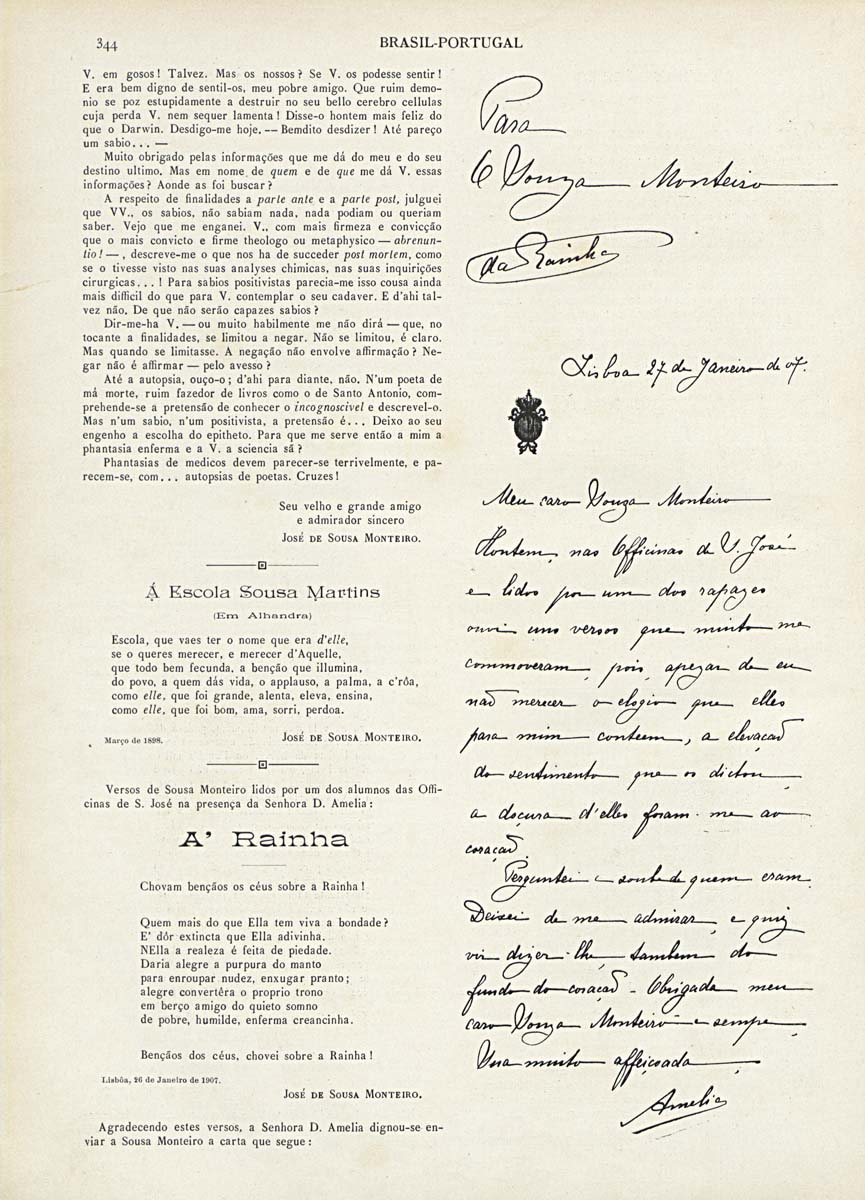 344
BRASIL-PORTUGAL
V. em gosos! Talvez. Mas os nossos? Se V. os podesse sentir!
E era bem digno de sentil-os, meu pobre amigo. Que ruim demo-
nio se poz estupidamente a destruir no seu bello cerebro cellulas
cuja perda V. nem sequer lamenta! Disse-o hontem mais feliz do
que o Darwin. Desdigo-me hoje. — Bemdito desdizer! Até pareço
um sabio... —
Muito obrigado pelas informações que me dá do meu e do seu
destino ultimo. Mas em nome de quem e de que me dá V. essas
informações? Aonde as foi buscar?
A respeito de finalidades a parte ante e a parte post, julguei
que VV., os sabios, não sabiam nada, nada podiam ou queriam
saber. Vejo que me enganei. V., com mais firmeza e convicção
que o mais convicto e firme theologo ou metaphysico — abrenun-
tio! — , descreve-me o que nos ha de succeder post mortem, como
se o tivesse visto nas suas analyses chimicas, nas suas inquirições
cirurgicas...! Para sabios positivistas parecia-me isso cousa ainda
mais difficil do que para V. contemplar o seu cadaver. E d'ahi tal-
vez não. De que não serão capazes sabios?
Dir-me-ha V. — ou muito habilmente me não dirá — que, no
tocante a finalidades, se limitou a negar. Não se limitou, é claro.
Mas quando se limitasse. A negação não envolve affirmação? Ne-
gar não é affirmar — pelo avesso?
Até a autopsia, ouço-o; d'ahi para diante, não. N'um poeta de
má morte, ruim fazedor de livros como o de Santo Antonio, com-
prehende-se a pretensão de conhecer o incognoscivel e descrevel-o.
Mas n'um sabio, n'um positivista, a pretensão é... Deixo ao seu
engenho a escolha do epitheto. Para que me serve então a mim a
phantasia enferma e a V. a sciencia sã?
Phantasias de medicos devem parecer-se terrivelmente, e pa-
recem-se, com... autopsias de poetas. Cruzes!
Seu velho e grande amigo
e admirador sincero
JOSÉ DE SOUSA MONTEIRO.
Á Escola Sousa Martins
(Em Alhandra)
Escola, que vaes ter o nome que era d'elle,
se o queres merecer, e merecer d'Aquelle,
que todo bem fecunda, a benção que illumina,
do povo, a quem dás vida, o applauso, a palma, a c'rôa,
como elle, que foi grande, alenta, eleva, ensina,
como elle, que foi bom, ama, sorri, perdoa.
Março de 1898.
JOSÉ DE SOUSA MONTEIRO.
Versos de Sousa Monteiro lidos por um dos alumnos das Offi-
cinas de S. José na presença da Senhora D. Amelia:
A' Rainha
Chovam bençãos os céus sobre a Rainha!
Quem mais do que Ella tem viva a bondade?
E' dôr extincta que Ella adivinha.
NElla a realeza é feita de piedade.
Daria alegre a purpura do manto
para enroupar nudez, enxugar pranto;
alegre convertêra o proprio trono
em berço amigo do quieto somno
de pobre, humilde, enferma creancinha.
Bençãos dos céus, chovei sobre a Rainha!
Lisbôa, 26 de Janeiro de 1907.
JOSÉ DE SOUSA MONTEIRO.
Agradecendo estes versos, a Senhora D. Amelia dignou-se en-
viar a Sousa Monteiro a carta que segue:
Para
O Souza Monteiro
(da Rainha)
Lisboa 27 de Janeiro de 07.
Meu caro Souza Monteiro
Hontem, nas Officinas de S. José
e lidos por um dos rapazes
ouvi uns versos que muito me
commoveram, pois, apezar de eu
naõ merecer o elogio que elles
para mim conteem, a elevaçaõ
do sentimento que os dictou,
a doçura d'elles foram-me ao
coraçaõ.
Perguntei e soube de quem eram.
Deixei de me admirar, e quiz
vir dizer-lhe, tambem do
fundo do coraçaõ - Obrigada meu
caro Souza Monteiro - e sempre
Sua muito affeiçoada,
Amelia